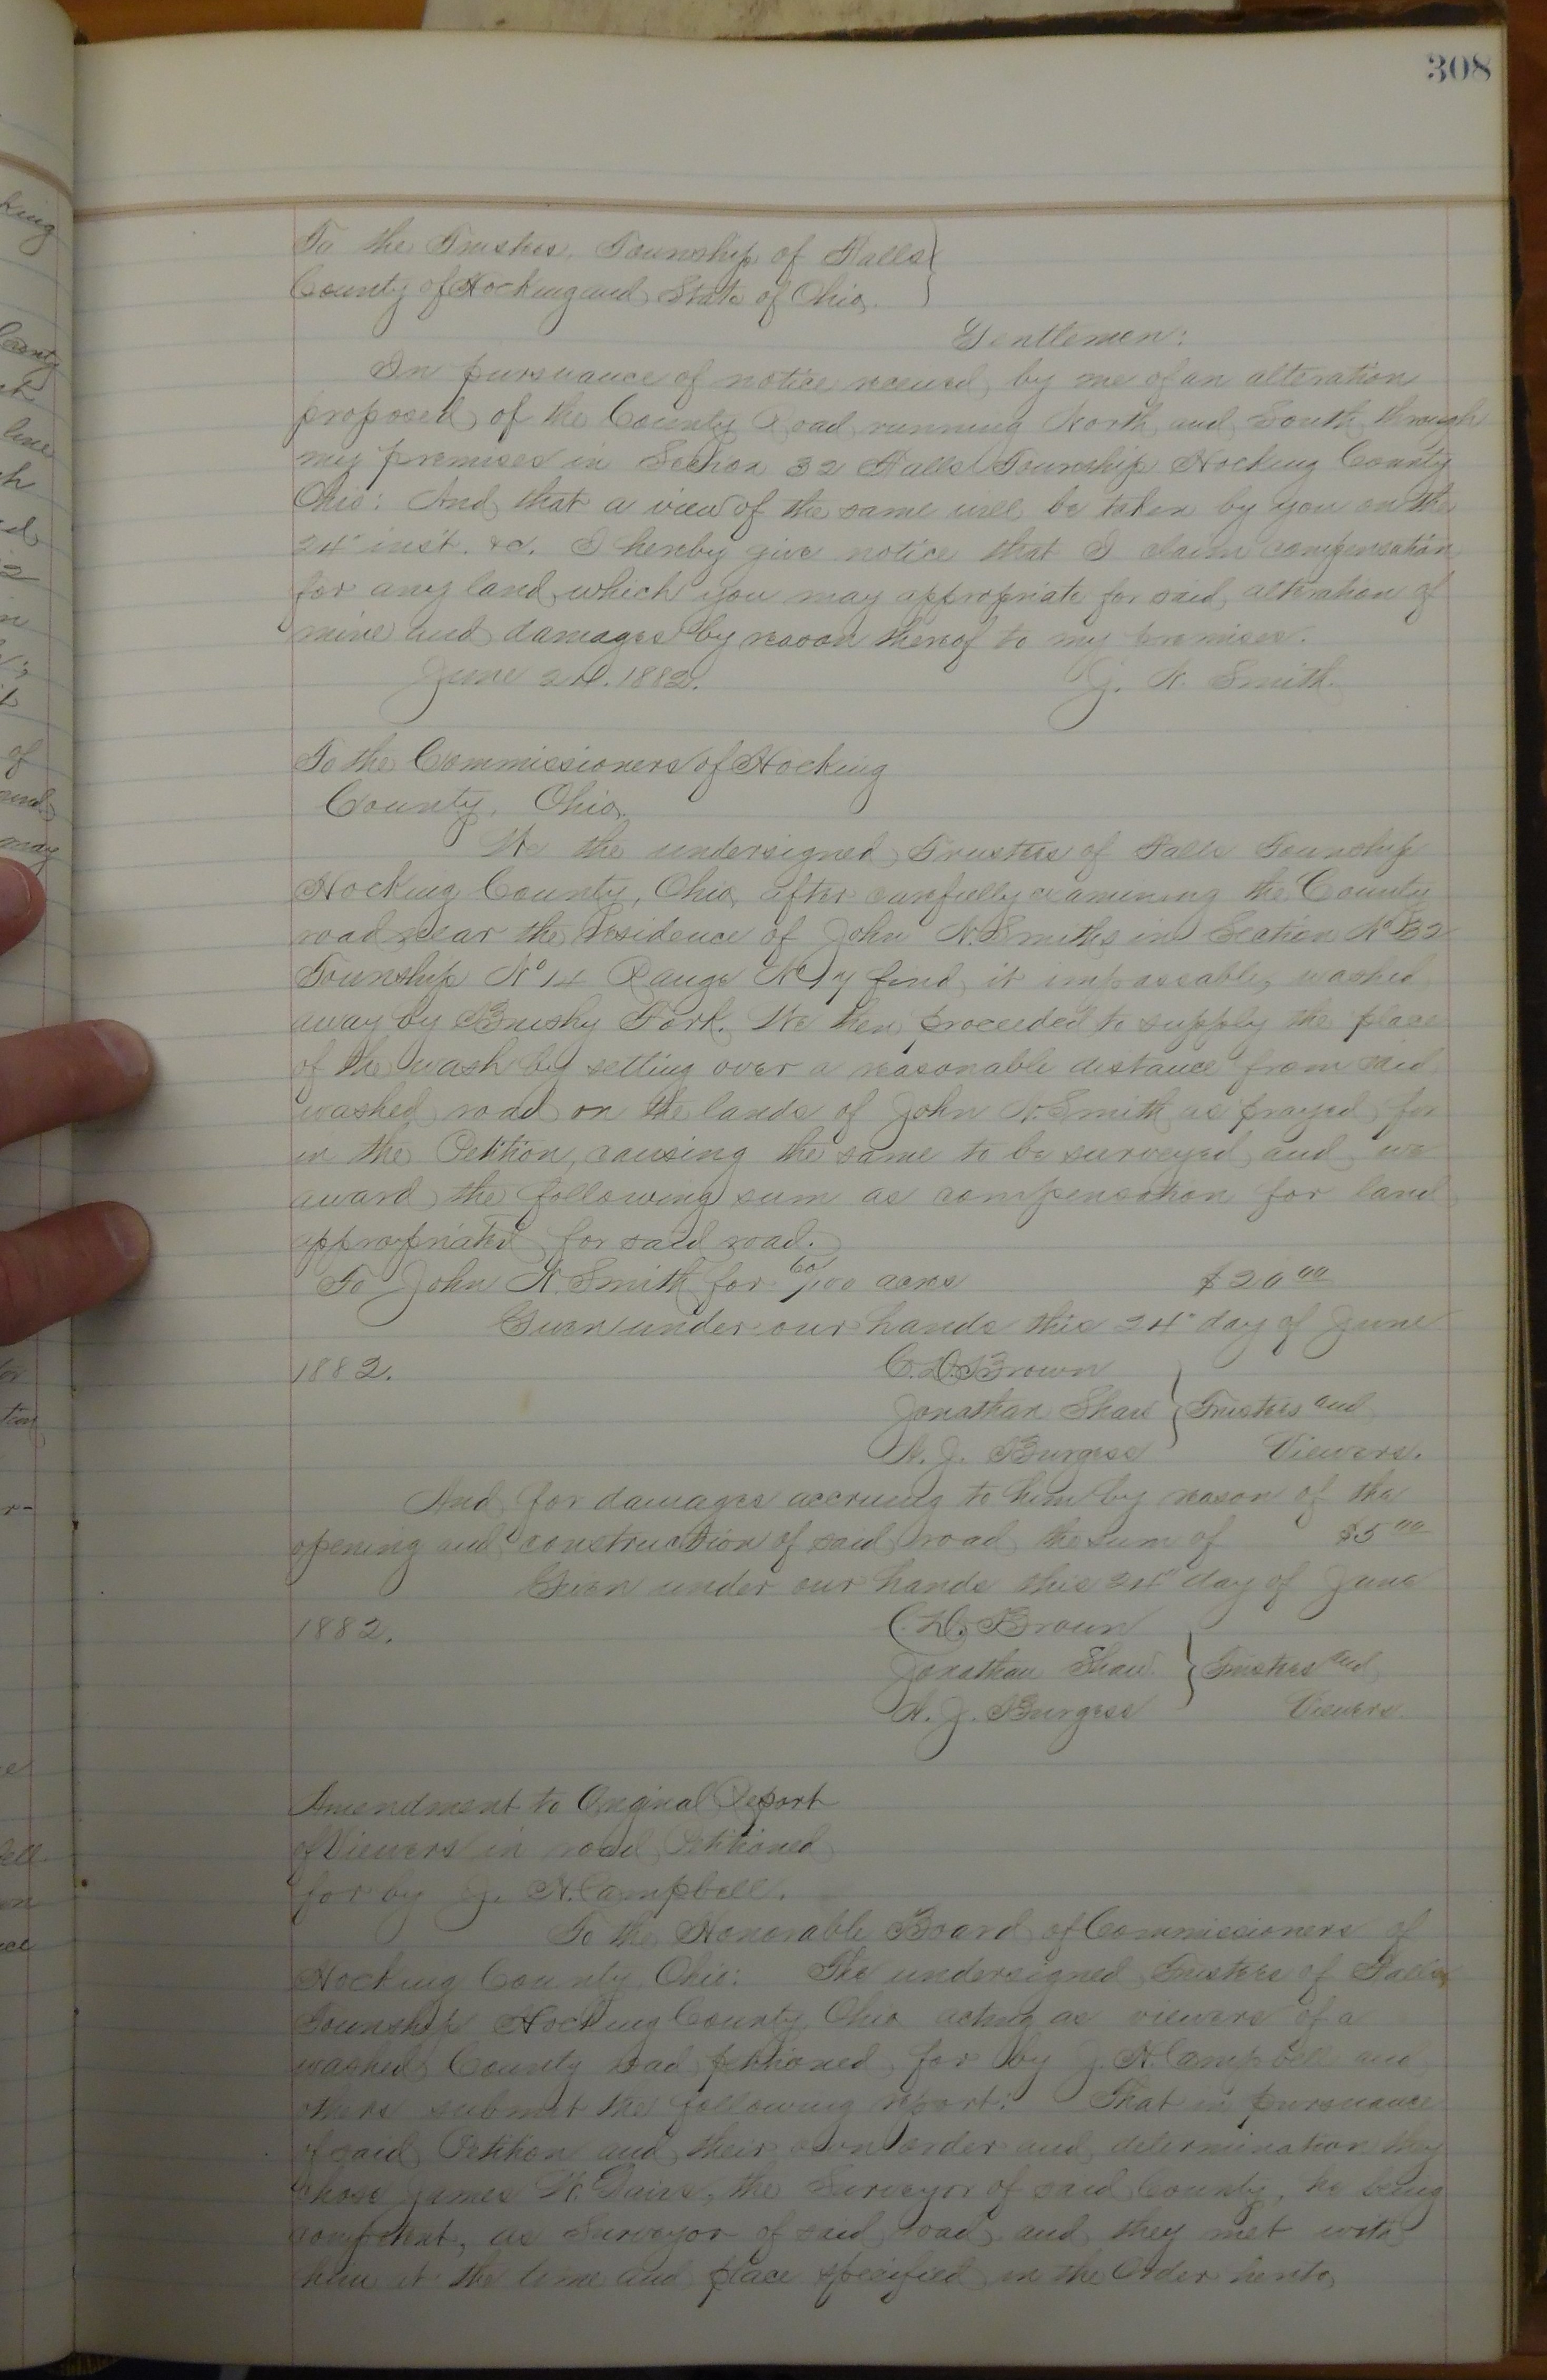 308
To the Trustees, Township of Falls
County of Hocking and State of Ohio.
Gentlemen:
In pursuance of notice received by me of an alteration
proposed of the County Road running North and South through
my premises in Section 32 Falls Township Hocking County
Ohio: And that a view of the same will be taken by you on the
24" inst. &c. I hereby give notice that I claim compensation
for any land which you may appropriate for said alteration of
mine and damages by reason thereof to my premises.
June 24. 1882. J. N. Smith.
To the Commissioners of Hocking
County, Ohio.
We the undersigned Trustees of Falls Township
Hocking County, Ohio, after carefully examining the County
road near the Residence of John N. Smiths in Section No 32
Township No 14 Range No 17 find it impassable, washed
away by Brushy Fork. We then proceeded to supply the place
of the wash by setting over a reasonable distance from said
washed road on the lands of John N. Smith as prayed for
in the Petition, causing the same to be surveyed and we
award the following sum as compensation for land
appropriated for said road.
To John N. Smith for 60/100 acres $20 00
Given under our hands this 24" day of June
1882. C. D. Brown
Jonathan Shaw } Trustees and
A. J. Burgess Viewers.
And for damages accruing to him by reason of the
opening and construction of said road the sum of $5 00
Given under our hands this 24" day of June
1882. C. D. Brown
Jonathan Shaw } Trustees and
A. J. Burgess Viewers.
Amendment to Original Report
of Viewers in road Petitioned
for by J. H. Campbell.
To the Honorable Board of Commissioners of
Hocking County, Ohio: The undersigned Trustees of Falls
Township Hocking County Ohio acting as viewers of a
washed County road petitioned for by J. H. Campbell and
others submit the following report: That in pursuance
of said Petition and their own order and determination they
chose James W. the Surveyor of said County, he being
competent, as Surveyor of said road and they met with
him at the time and place specified in the Order hereto